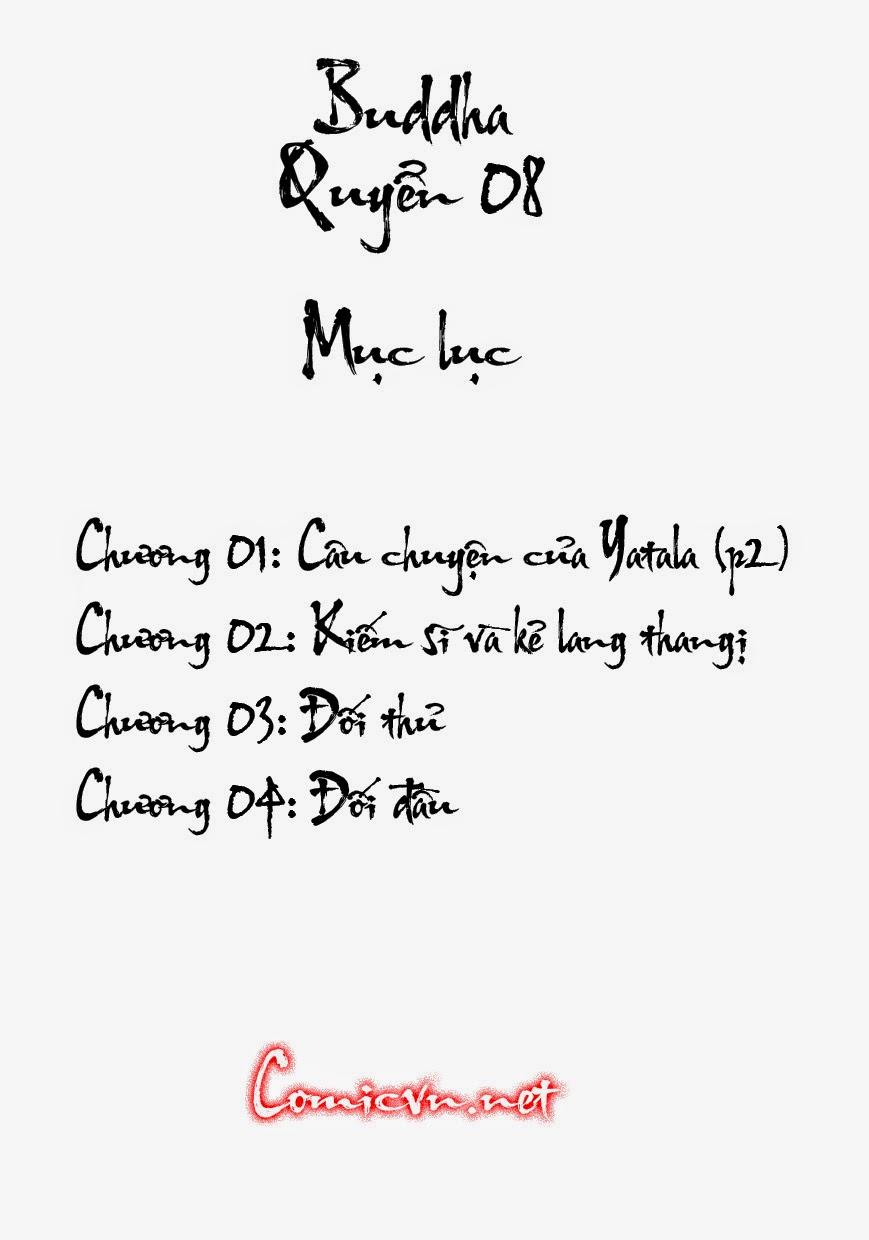 Buddha
Quyển 08
Mục lục
Chương 01: Câu chuyện của Yatala (p2)
Chương 02: Kiếm sĩ và kẻ lang thangị
Chương 03: Đối thủ
Chương 04: Đối đầu
Comicvn.net